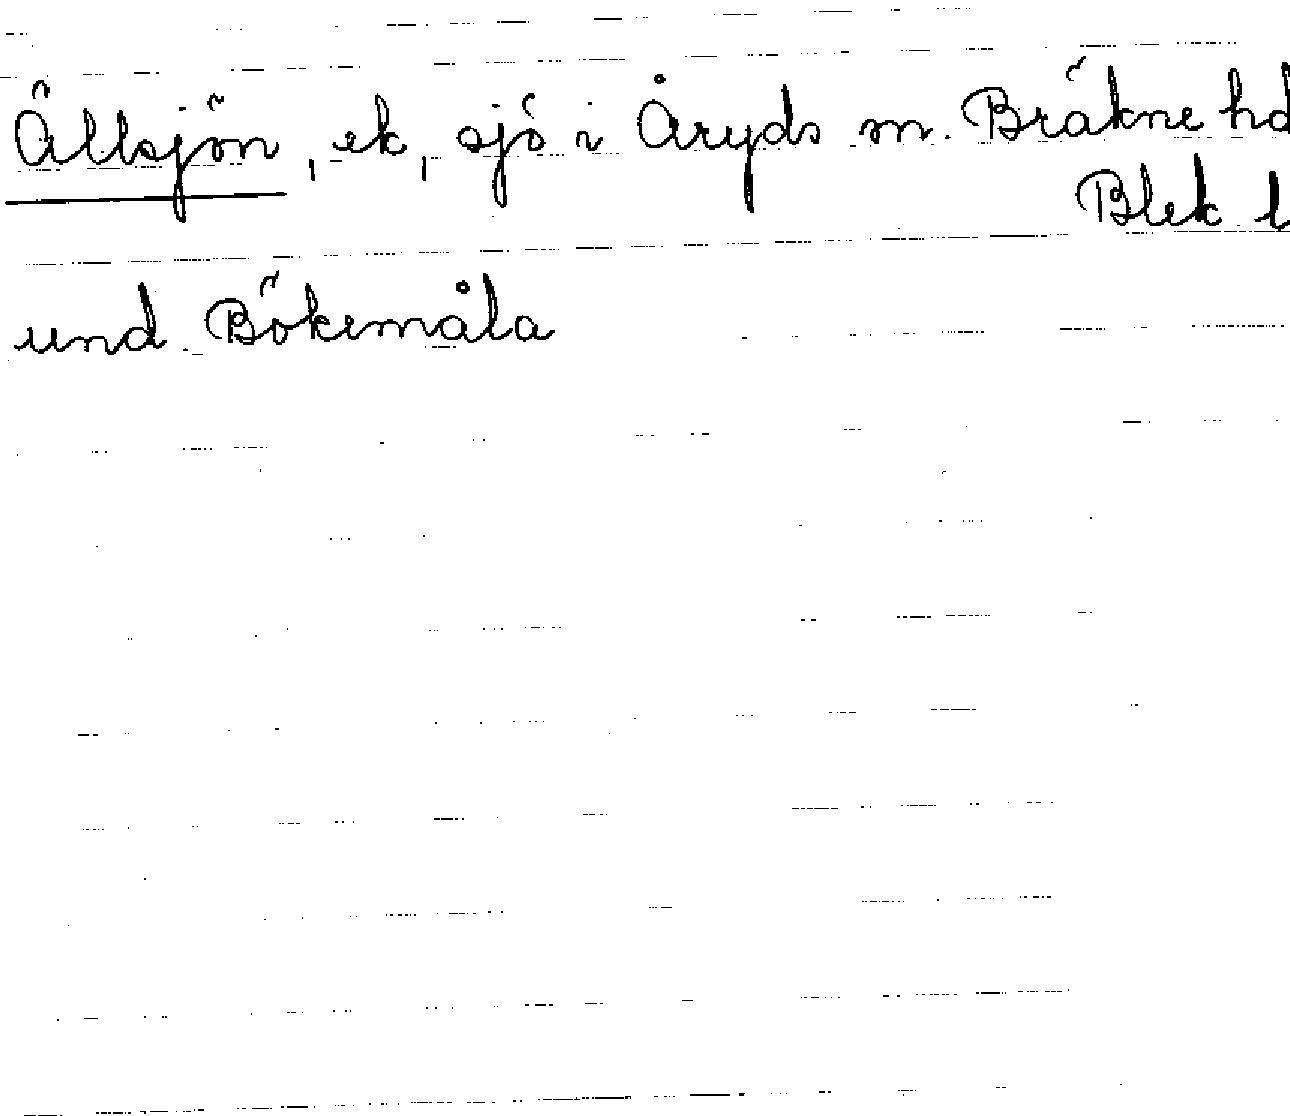 Ällsjön, ek, sjö i Åryds sn. Bräkne hd
Blek. l
und. Bökemåla